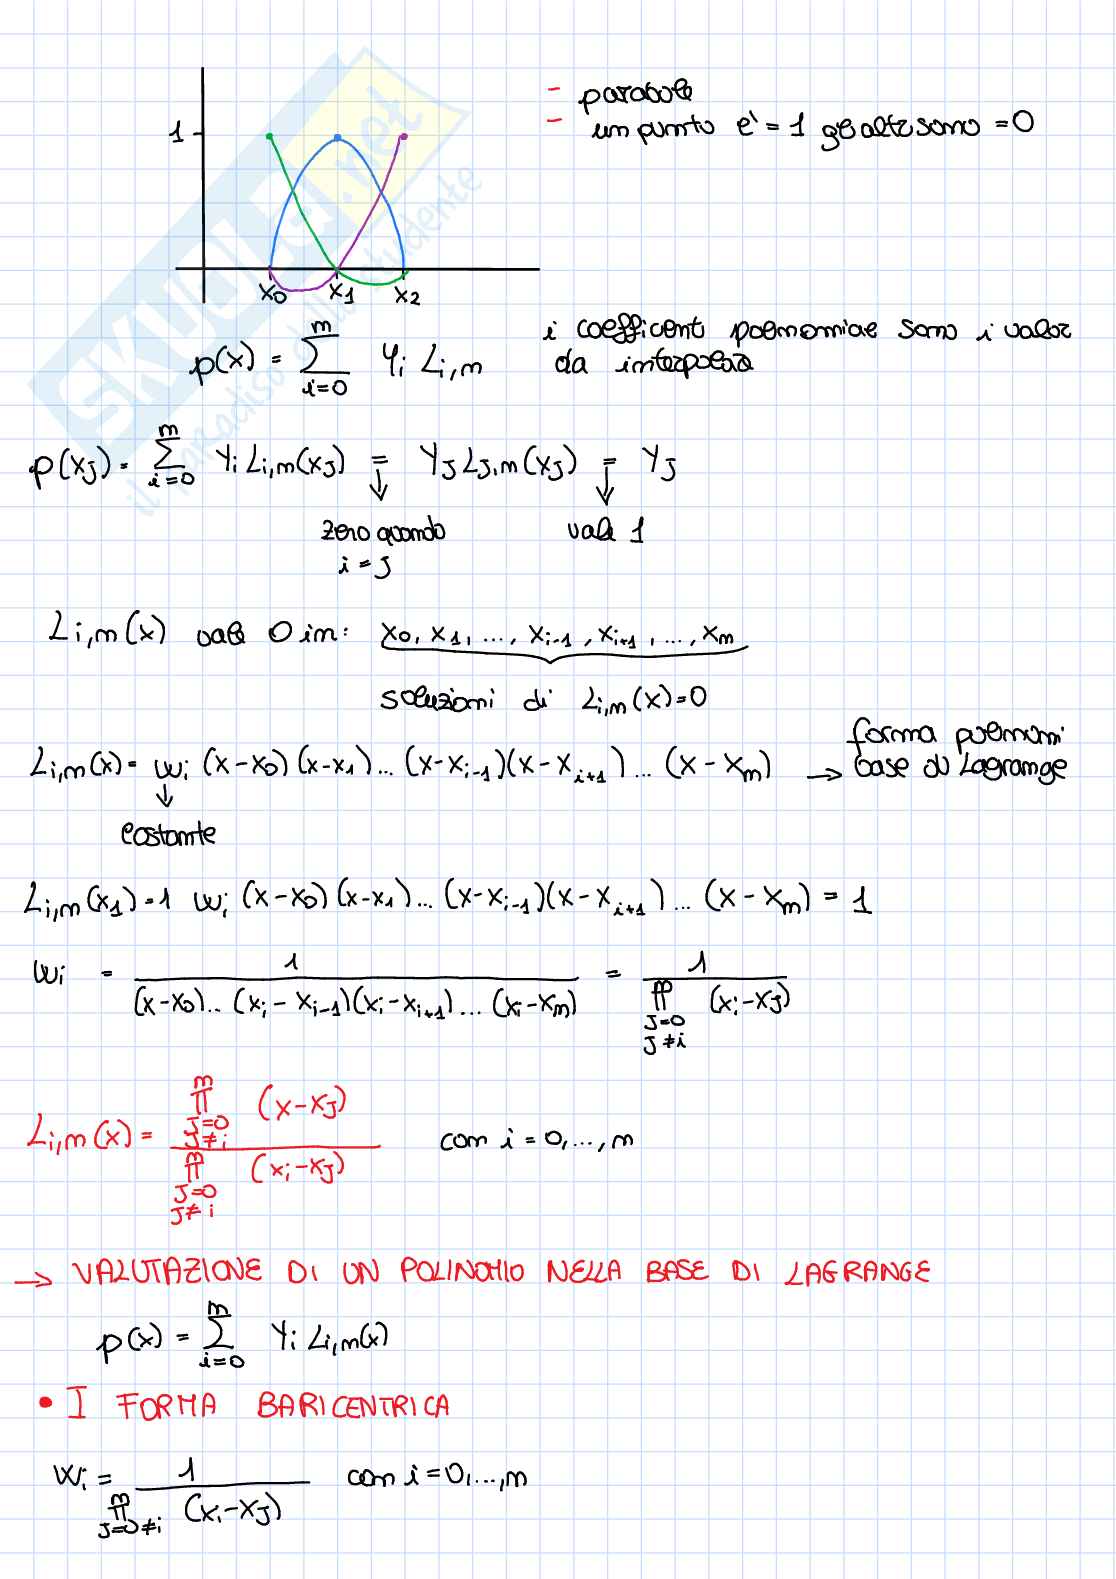 - parabole
1 - un punto e' = 1 gli altri sono = 0
x0 x1 x2
p(x) = ∑_{i=0}^{m} Yi Li,m i coefficenti polinomiali sono i valori
da interpolare
p(xJ) = ∑_{i=0}^{m} Yi Li,m(xJ) = YJ LJ,m(xJ) = YJ
zero quando vale 1
i = J
Li,m(x) vale 0 in: x0, x1, ..., xi-1, xi+1, ..., xm
soluzioni di Li,m(x)=0
forma polinomi
Li,m(x) = wi (x-x0)(x-x1)...(x-xi-1)(x-xi+1)...(x-xm) → base di Lagrange
costante
Li,m(x1)=1 wi (x-x0)(x-x1)...(x-xi-1)(x-xi+1)...(x-xm) = 1
wi = 1 / (x-x0)..(xi-xi-1)(xi-xi+1)...(xi-xm) = 1 / ∏_{J=0 J≠i} (xi-xJ)
Li,m(x) = ∏_{J=0 J≠i}^{m} (x-xJ) / ∏_{J=0 J≠i}^{m} (xi-xJ) con i = 0,...,m
→ VALUTAZIONE DI UN POLINOMIO NELLA BASE DI LAGRANGE
p(x) = ∑_{i=0}^{m} Yi Li,m(x)
• I FORMA BARICENTRICA
wi = 1 / ∏_{J=0≠i}^{m} (xi-xJ) con i=0,...,m
SKUOLA.net
il paradiso dello studente